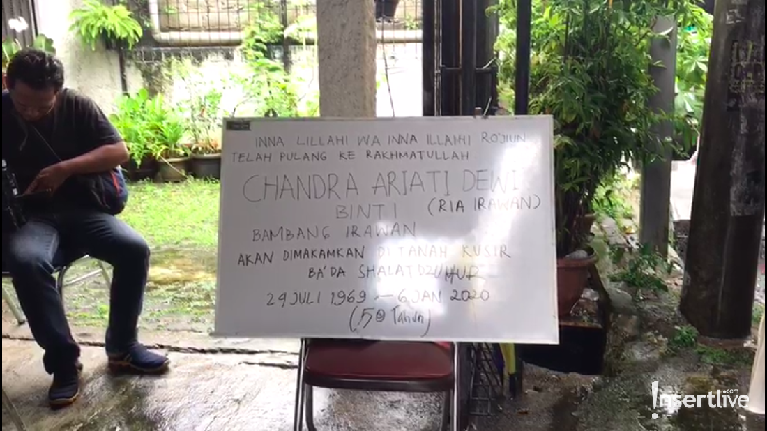 INNA LILLAHI WA INNA ILLAIHI ROJIUN
TELAH PULANG KE RAKHMATULLAH
CHANDRA ARIATI DEWI
BINTI (RIA IRAWAN)
BAMBANG IRAWAN
AKAN DIMAKAMKAN DI TANAH KUSIR
BA'DA SHALAT DZUHUR
24 JULI 1969 — 6 JAN 2020
(50 Tahun)
!nsertlive.com